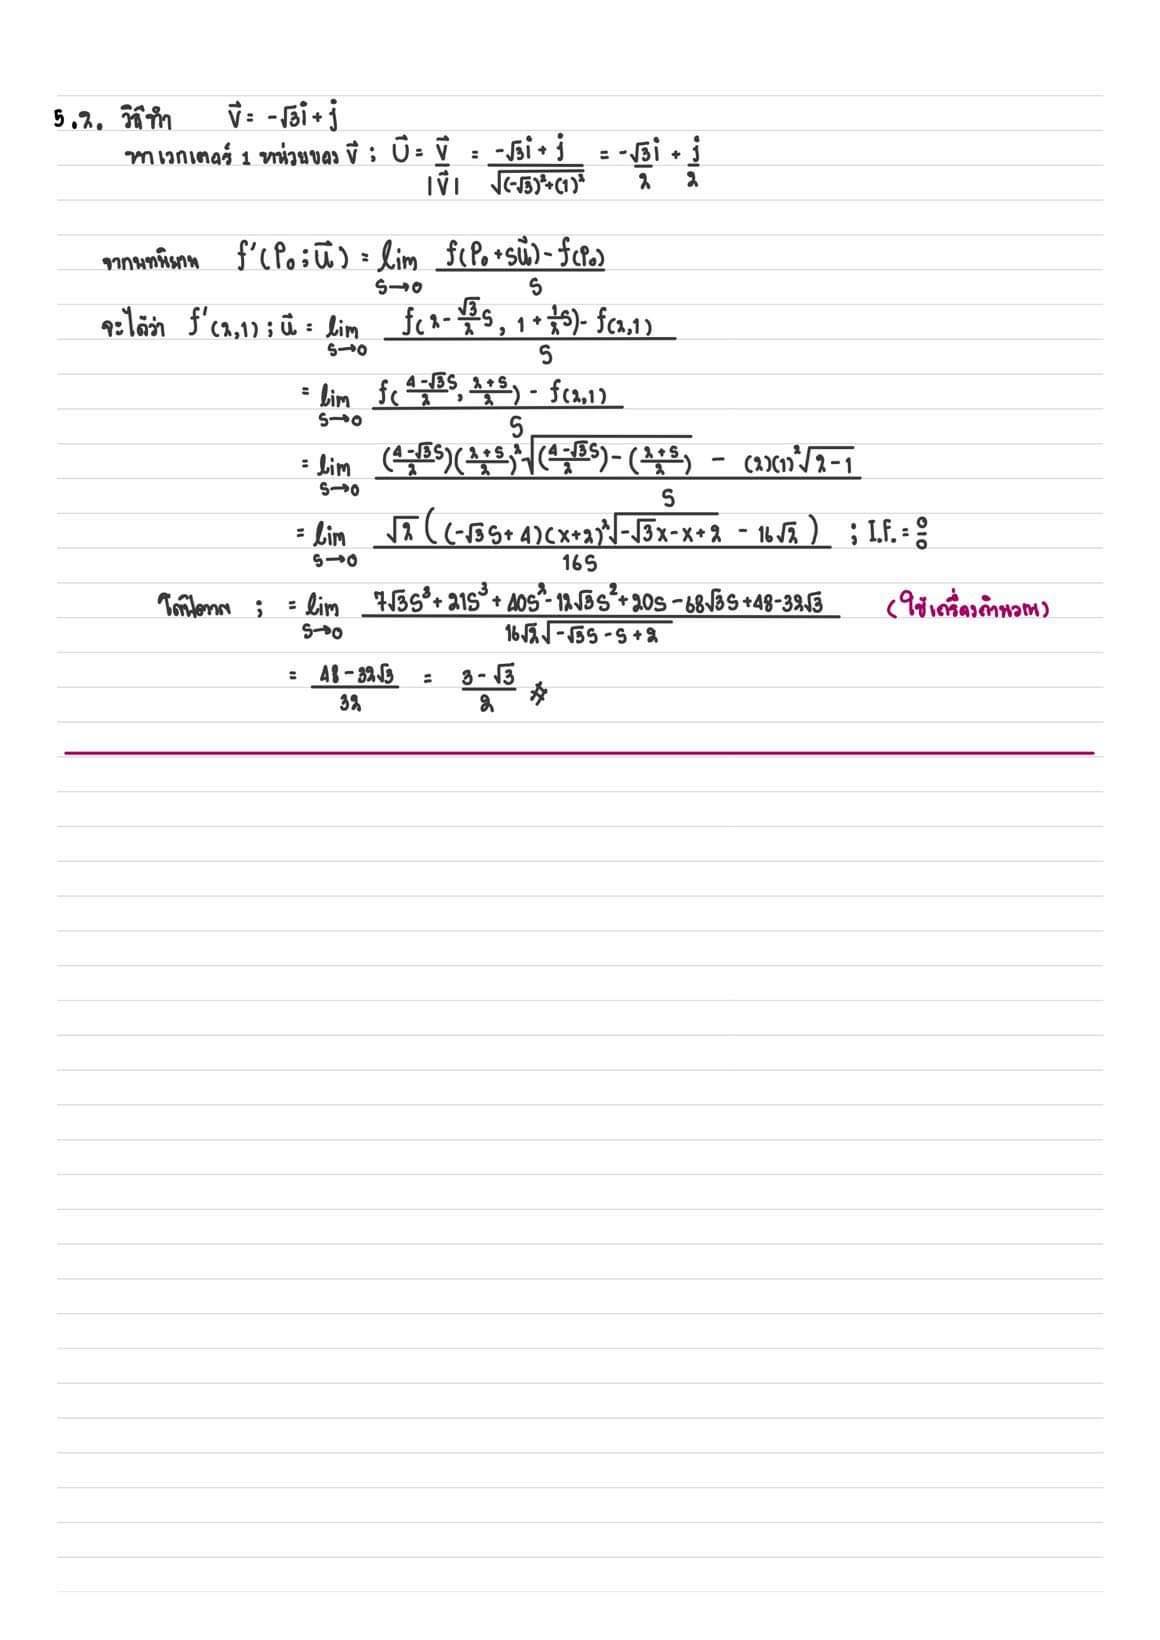 5.2. วิธีทำ V⃗ = -√3i + j
หาเวกเตอร์ 1 หน่วยของ V⃗ ; U⃗ = V⃗/|V⃗| = (-√3i + j)/√((-√3)²+(1)²) = -√3i/2 + j/2
จากบทนิยาม f'(P₀;u⃗) = lim s→0 (f(P₀+su⃗) - f(P₀))/s
จะได้ว่า f'(2,1);u⃗ = lim s→0 (f(2-(√3/2)s, 1+(1/2)s) - f(2,1))/s
= lim s→0 (f((4-√3s)/2, (2+s)/2) - f(2,1))/s
= lim s→0 (((4-√3s)/2)((2+s)/2)²√(((4-√3s)/2)-((2+s)/2)) - (2)(1)²√(2-1))/s
= lim s→0 √2((-√3s+4)(x+2)²√(-√3x-x+2) - 16√2)/16s ; I.F. = 0/0
โลปิตาล ; = lim s→0 (7√3s³+21s³+40s²-12√3s²+20s-68√3s+48-32√3)/(16√2√(-√3s-s+2)) (ใช้เครื่องคำนวณ)
= (48-32√3)/32 = (3-√3)/2 #